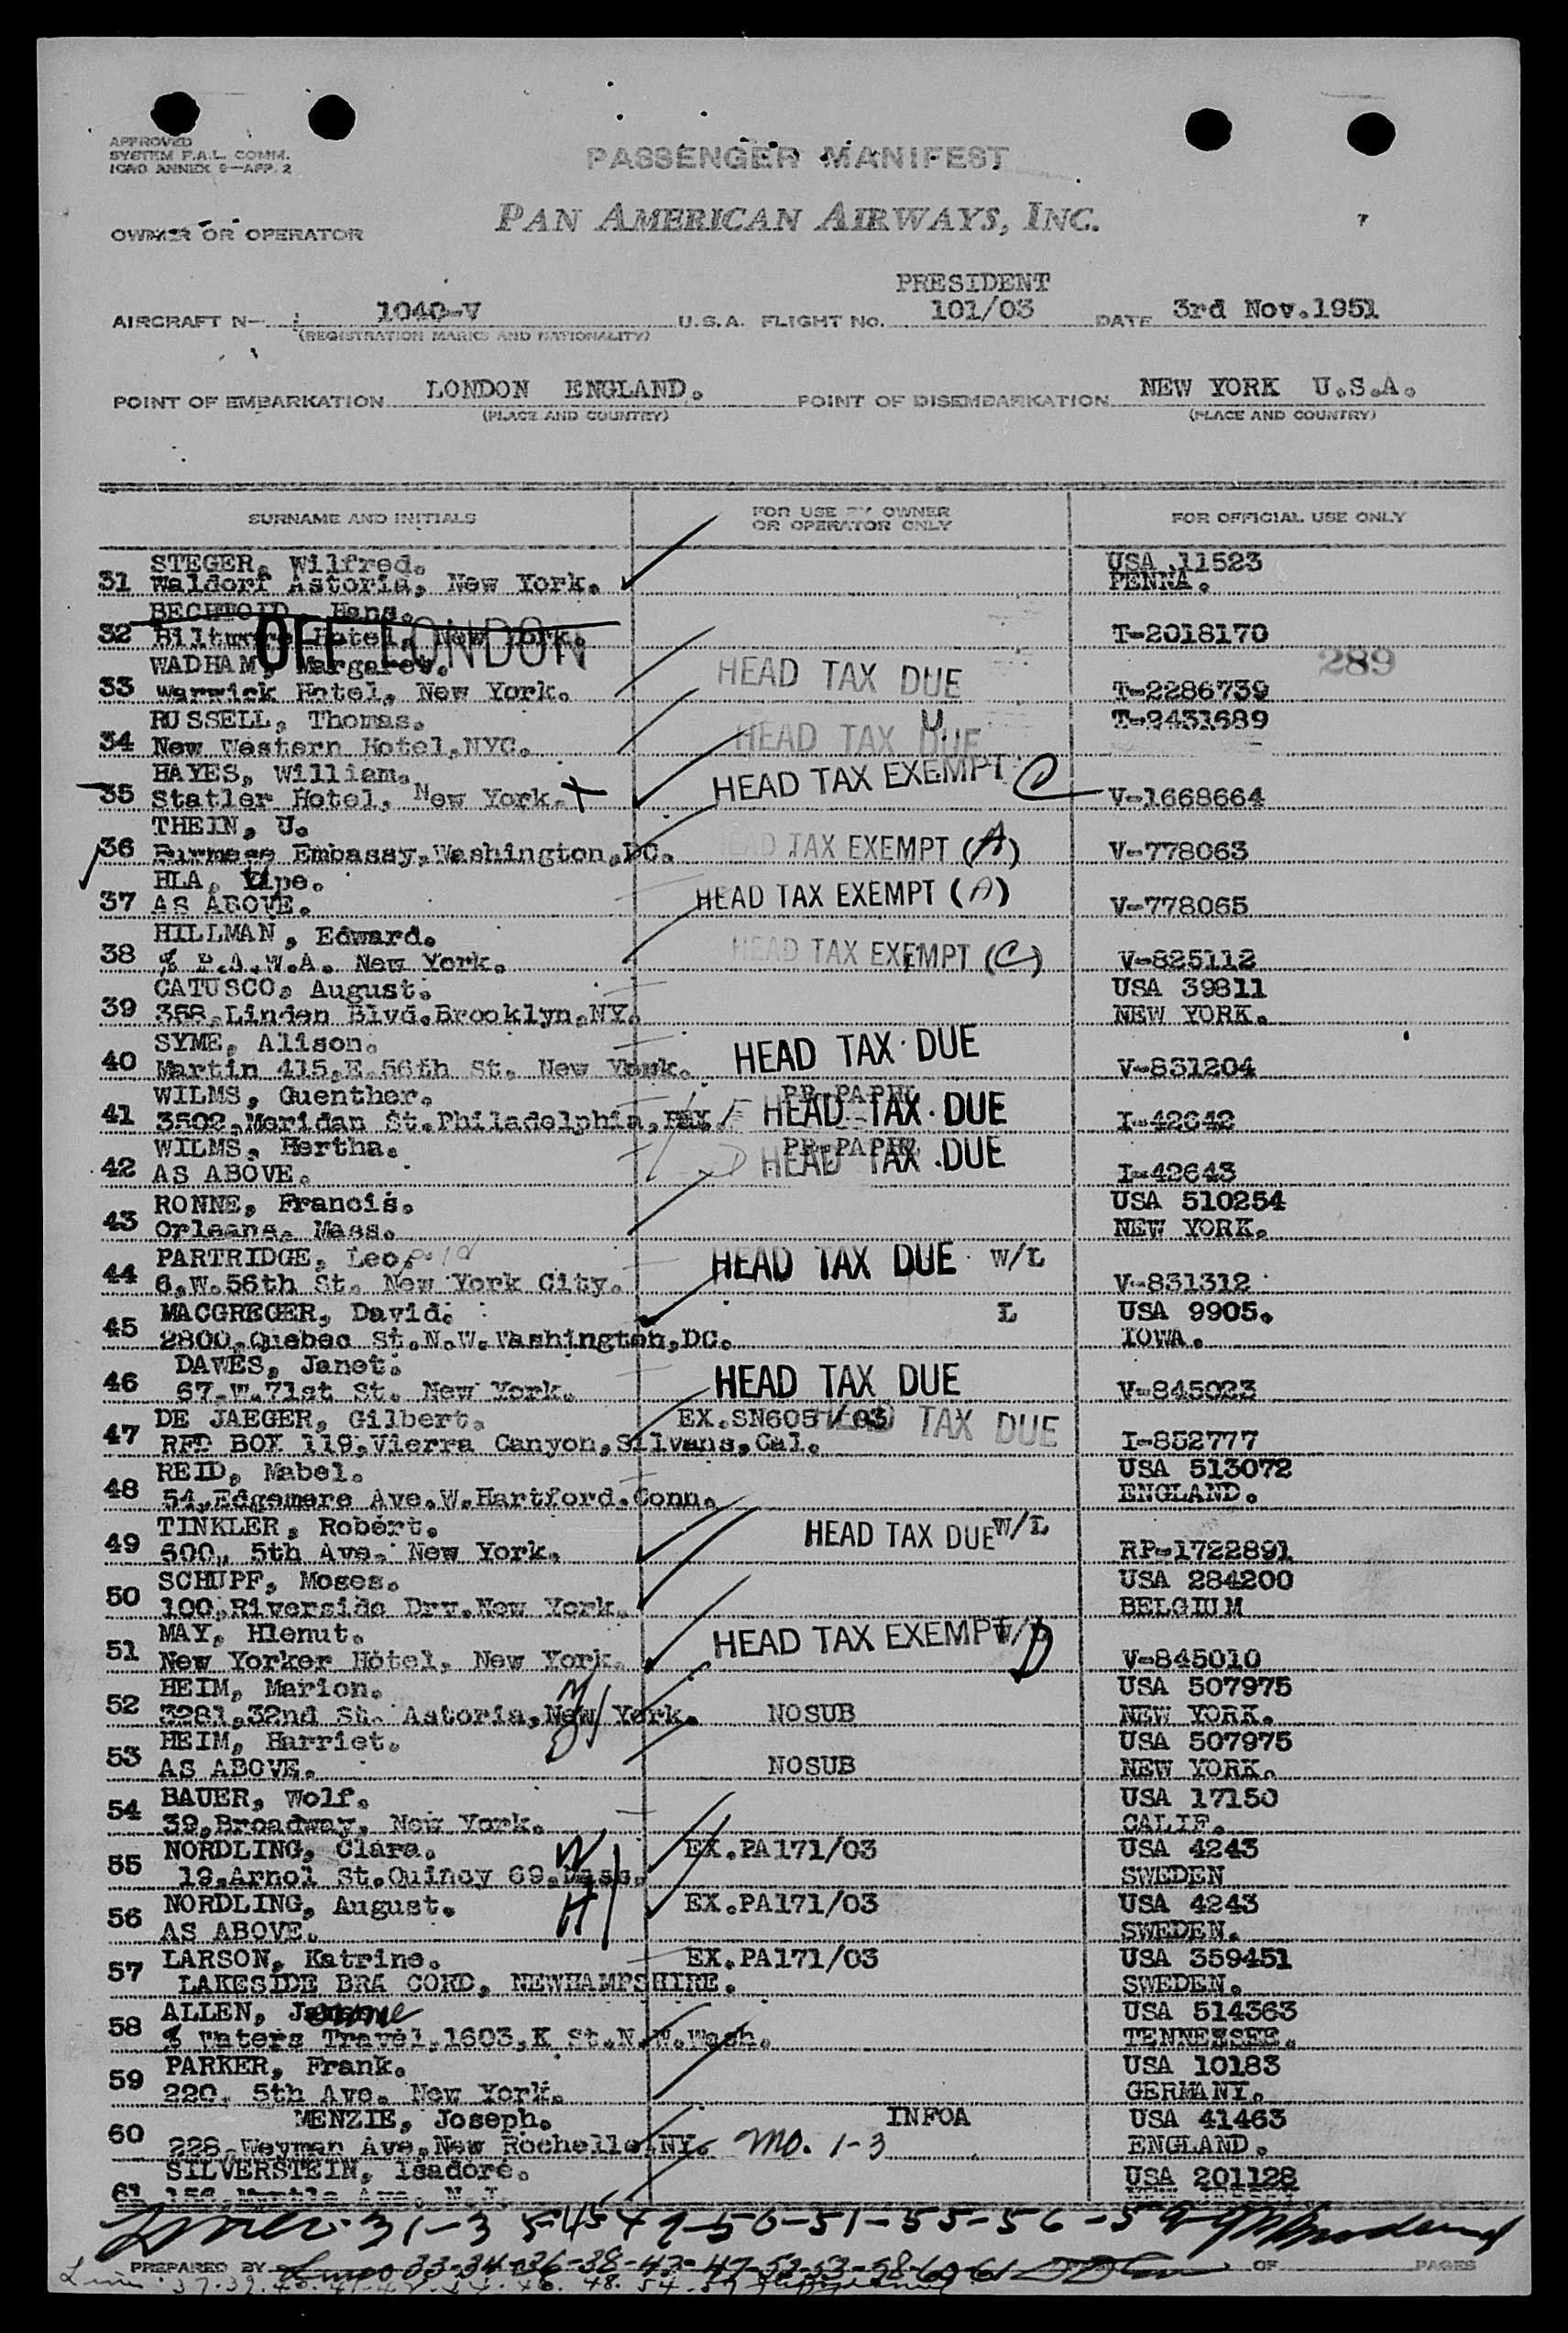 APPROVED
SYSTEM F.A.L. COMM.
ICAO ANNEX 9—APP. 2
PASSENGER MANIFEST
OWNER OR OPERATOR PAN AMERICAN AIRWAYS, INC.
PRESIDENT
AIRCRAFT N— 1040-V U.S.A. FLIGHT NO. 101/03 DATE 3rd Nov.1951
(REGISTRATION MARKS AND NATIONALITY)
POINT OF EMBARKATION LONDON ENGLAND. POINT OF DISEMBARKATION NEW YORK U.S.A.
(PLACE AND COUNTRY) (PLACE AND COUNTRY)
SURNAME AND INITIALS FOR USE BY OWNER OR OPERATOR ONLY FOR OFFICIAL USE ONLY
STEGER, Wilfred. USA 11523
31 Waldorf Astoria, New York. PENNA.
BECHTOLD, Hans.
32 Biltmore Hotel, New York. T-2018170
OFF LONDON
289
WADHAM, Margaret. HEAD TAX DUE
33 Warwick Hotel, New York. T-2286739
RUSSELL, Thomas. T-2431689
34 New Western Hotel,NYC. HEAD TAX DUE
HAYES, William. HEAD TAX EXEMPT C
35 Statler Hotel, New York. V-1668664
THEIN, U.
36 Burmese Embassy,Washington,DC. HEAD TAX EXEMPT (A) V-778063
HLA, Yipe. HEAD TAX EXEMPT (A)
37 AS ABOVE. V-778065
HILLMAN, Edward. HEAD TAX EXEMPT (C)
38 % P.A.W.A. New York. V-825112
CATUSCO, August. USA 39811
39 Linden Blvd.Brooklyn,NY. NEW YORK.
SYME, Alison. HEAD TAX DUE
40 Martin 415,E.56th St. New York. V-831204
WILMS, Guenther. HEAD TAX DUE
41 3502,Meridan St.Philadelphia, I-42642
WILMS, Hertha. HEAD TAX DUE
42 AS ABOVE. I-42643
RONNE, Francis. USA 510254
43 Orleans, Mass. NEW YORK.
PARTRIDGE, Leo. HEAD TAX DUE W/L
44 6,W.56th St. New York City. V-831312
MACGREGER, David. L USA 9905.
45 2800,Quebec St.N.W.Washington,DC. IOWA.
DAWES, Janet. HEAD TAX DUE
46 67,W.71st St. New York. V-845023
DE JAEGER, Gilbert. EX.SN605/03 HEAD TAX DUE
47 RFD BOX 119,Vierra Canyon,Silvans,Cal. I-852777
REID, Mabel. USA 513072
48 54,Edgemere Ave.W.Hartford.Conn. ENGLAND.
TINKLER, Robert. HEAD TAX DUE W/L
49 500, 5th Ave. New York. RP-1722891
SCHUPF, Moses. USA 284200
50 100,Riverside Drv.New York. BELGIUM
MAY, Hlenut. HEAD TAX EXEMPT D
51 New Yorker Hotel, New York. V-845010
HEIM, Marion. USA 507975
52 3281,32nd St. Astoria,New York. NOSUB NEW YORK.
HEIM, Harriet. USA 507975
53 AS ABOVE. NOSUB NEW YORK.
BAUER, Wolf. USA 17150
54 39,Broadway. New York. CALIF.
NORDLING, Clara. EX.PA171/03 USA 4243
55 19,Arnol St.Quincy 69.Mass. SWEDEN
NORDLING, August. EX.PA171/03 USA 4243
56 AS ABOVE. SWEDEN.
LARSON, Katrine. EX.PA171/03 USA 359451
57 LAKESIDE BRA CORD, NEWHAMPSHIRE. SWEDEN.
ALLEN, USA 514363
58 % Waters Travel,1603,K St.N.W.Wash. TENNESSEE.
PARKER, Frank. USA 10183
59 220, 5th Ave. New York. GERMANY.
MENZIE, Joseph. INFOA USA 41463
60 228,Weyman Ave,New Rochelle,NY. Mo. 1-3 ENGLAND.
SILVERSTEIN, Isadore. USA 201128
61 156,Myrtle Ave. N.J.
PREPARED BY 33-34-36-38-43-47-52-53-58-60-61 OF PAGES